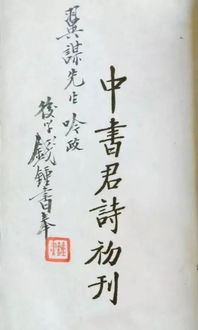 中書君詩初刊
翼謀先生吟政
後学钱鍾書奉